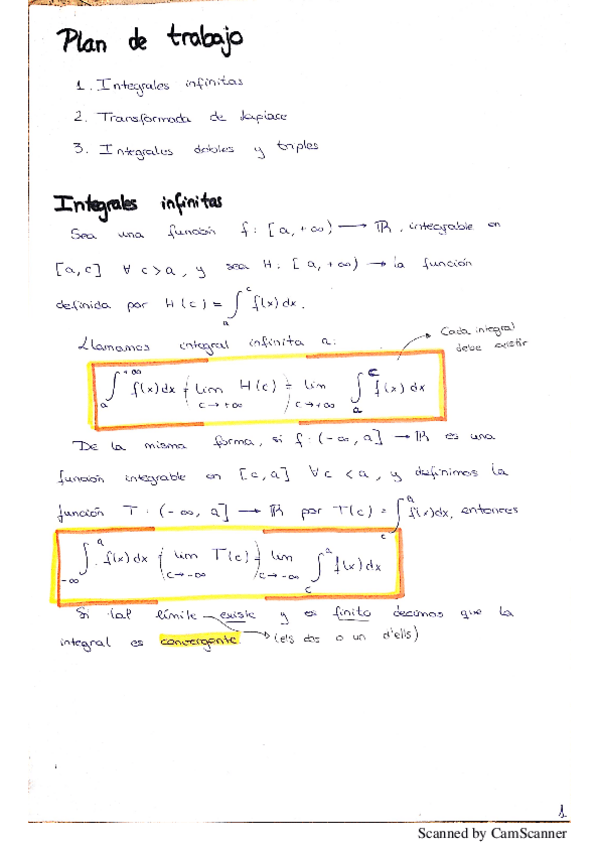 Plan de trabajo
1. Integrales infinitas
2. Transformada de Laplace
3. Integrales dobles y triples
Integrales infinitas
Sea una función f: [a, +∞) → ℝ, integrable en
[a,c] ∀ c>a, y sea H: [a, +∞) → la función
definida por H(c) = ∫_a^c f(x)dx.
Llamamos integral infinita a:
Cada integral
debe existir
∫_a^{+∞} f(x)dx = lim_{c→+∞} H(c) = lim_{c→+∞} ∫_a^c f(x)dx
De la misma forma, si f: (-∞, a] → ℝ es una
función integrable en [c,a] ∀ c<a, y definimos la
función T: (-∞, a] → ℝ por T(c) = ∫_c^a f(x)dx, entonces
∫_{-∞}^a f(x)dx = lim_{c→-∞} T(c) = lim_{c→-∞} ∫_c^a f(x)dx
Si tal límite existe y es finito decimos que la
integral es convergente. (els dos o un d'ells)
1
Scanned by CamScanner